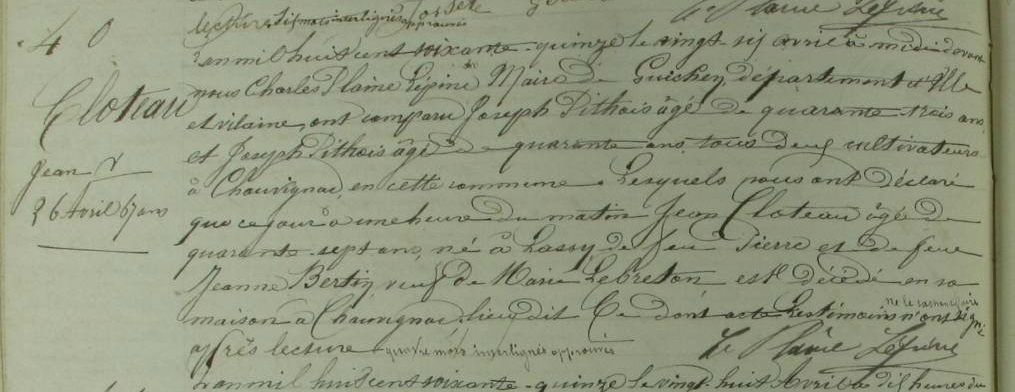 lecture six mots interlignés approuvés
40
L'an mil huit cent soixante-quinze le vingt six avril à midi devant
nous Charles Plaine Lépine Maire de Guichen, département d'Ille
Cloteau
et vilaine, ont comparu Joseph Pithois âgé de quarante-trois ans
et Joseph Pithois âgé de quarante ans, tous deux cultivateurs
Jean
à Chauvignac, en cette commune. Lesquels nous ont déclaré
26 Avril 67 ans
que ce jour à une heure du matin Jean Cloteau âgé de
quarante-sept ans, né à Lassy, de feu Pierre et de feue
Jeanne Bertin, veuf de Marie Lebreton est décédé en sa
maison à Chauvignac, lieu dit Ce dont acte Les témoins n'ont signé
ne le sachant faire
après lecture quatre mots interlignés approuvés
L'an mil huit cent soixante-quinze le vingt-huit Avril à dix heures du